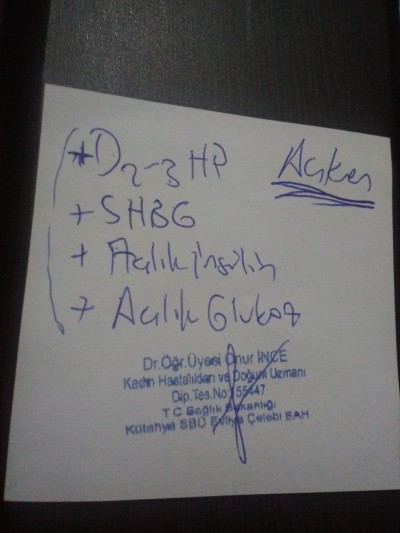 + D2-3 HP
Açken
+ SHBG
+ Açlık insülin
+ Açlık Glukoz
Dr.Öğr.Üyesi Onur İNCE
Kadın Hastalıkları ve Doğum Uzmanı
Dip.Tes.No: 55447
T C Sağlık Bakanlığı
Kütahya SBÜ Evliya Çelebi EAH